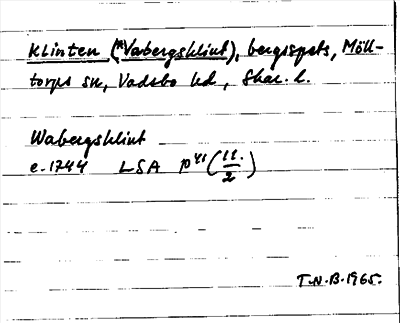 Klinten (*Vabergsklint), bergspets, Möll-
torps sn, Vadsbo hd, Skar. l.
Wabergsklint
e. 1744 LSA (11./2)
T.N.B. 1965.